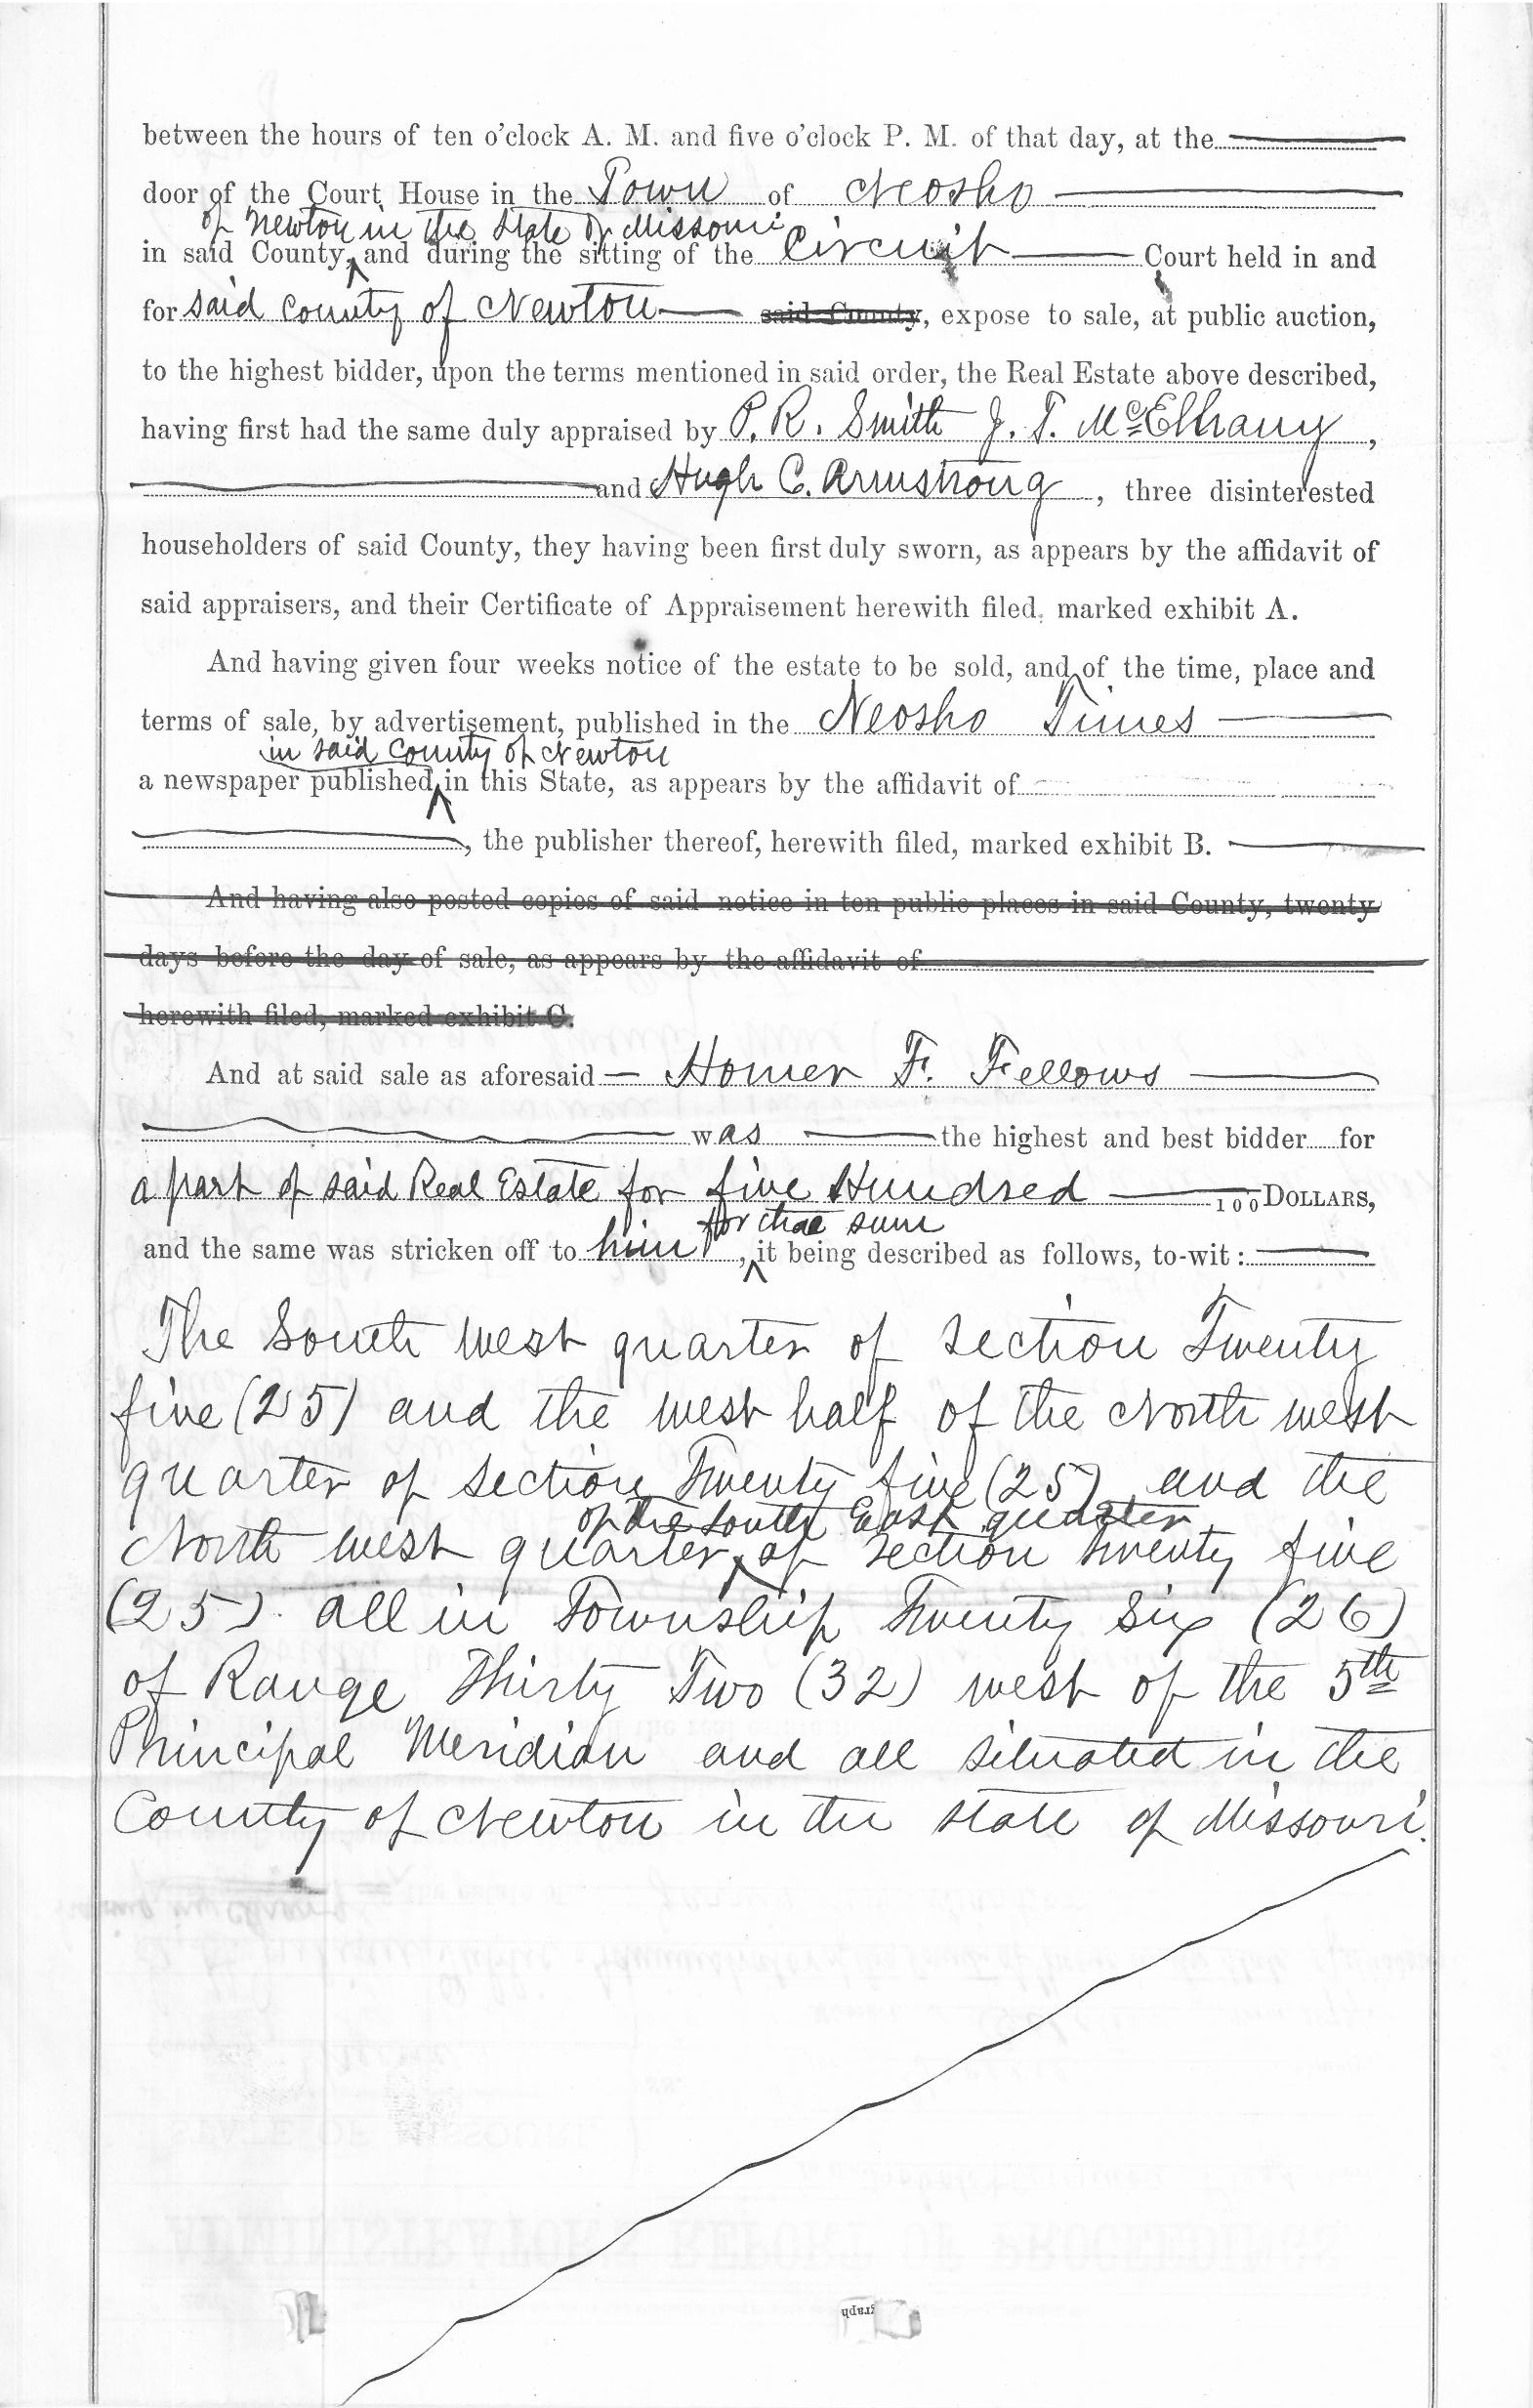 between the hours of ten o'clock A. M. and five o'clock P. M. of that day, at the
door of the Court House in the Town of Neosho
of Newton in the State of Missouri
in said County, and during the sitting of the Circuit Court held in and
for said County of Newton said County, expose to sale, at public auction,
to the highest bidder, upon the terms mentioned in said order, the Real Estate above described,
having first had the same duly appraised by P. R. Smith J. T. McElhany,
and Hugh C. Armstrong, three disinterested
householders of said County, they having been first duly sworn, as appears by the affidavit of
said appraisers, and their Certificate of Appraisement herewith filed, marked exhibit A.
And having given four weeks notice of the estate to be sold, and of the time, place and
terms of sale, by advertisement, published in the Neosho Times
in said County of Newton
a newspaper published in this State, as appears by the affidavit of
, the publisher thereof, herewith filed, marked exhibit B.
And having also posted copies of said notice in ten public places in said County, twenty
days before the day of sale, as appears by the affidavit of
herewith filed, marked exhibit C.
And at said sale as aforesaid — Homer F. Fellows
was the highest and best bidder for
a part of said Real Estate for five Hundred 100 DOLLARS,
for that sum
and the same was stricken off to him, it being described as follows, to-wit:
The South West quarter of section Twenty
five (25) and the west half of the North west
quarter of section Twenty five (25) and the
of the South East quarter
North west quarter of section twenty five
(25). all in Township Twenty Six (26)
of Range Thirty Two (32) west of the 5th
Principal Meridian and all situated in the
County of Newton in the state of Missouri.
graph